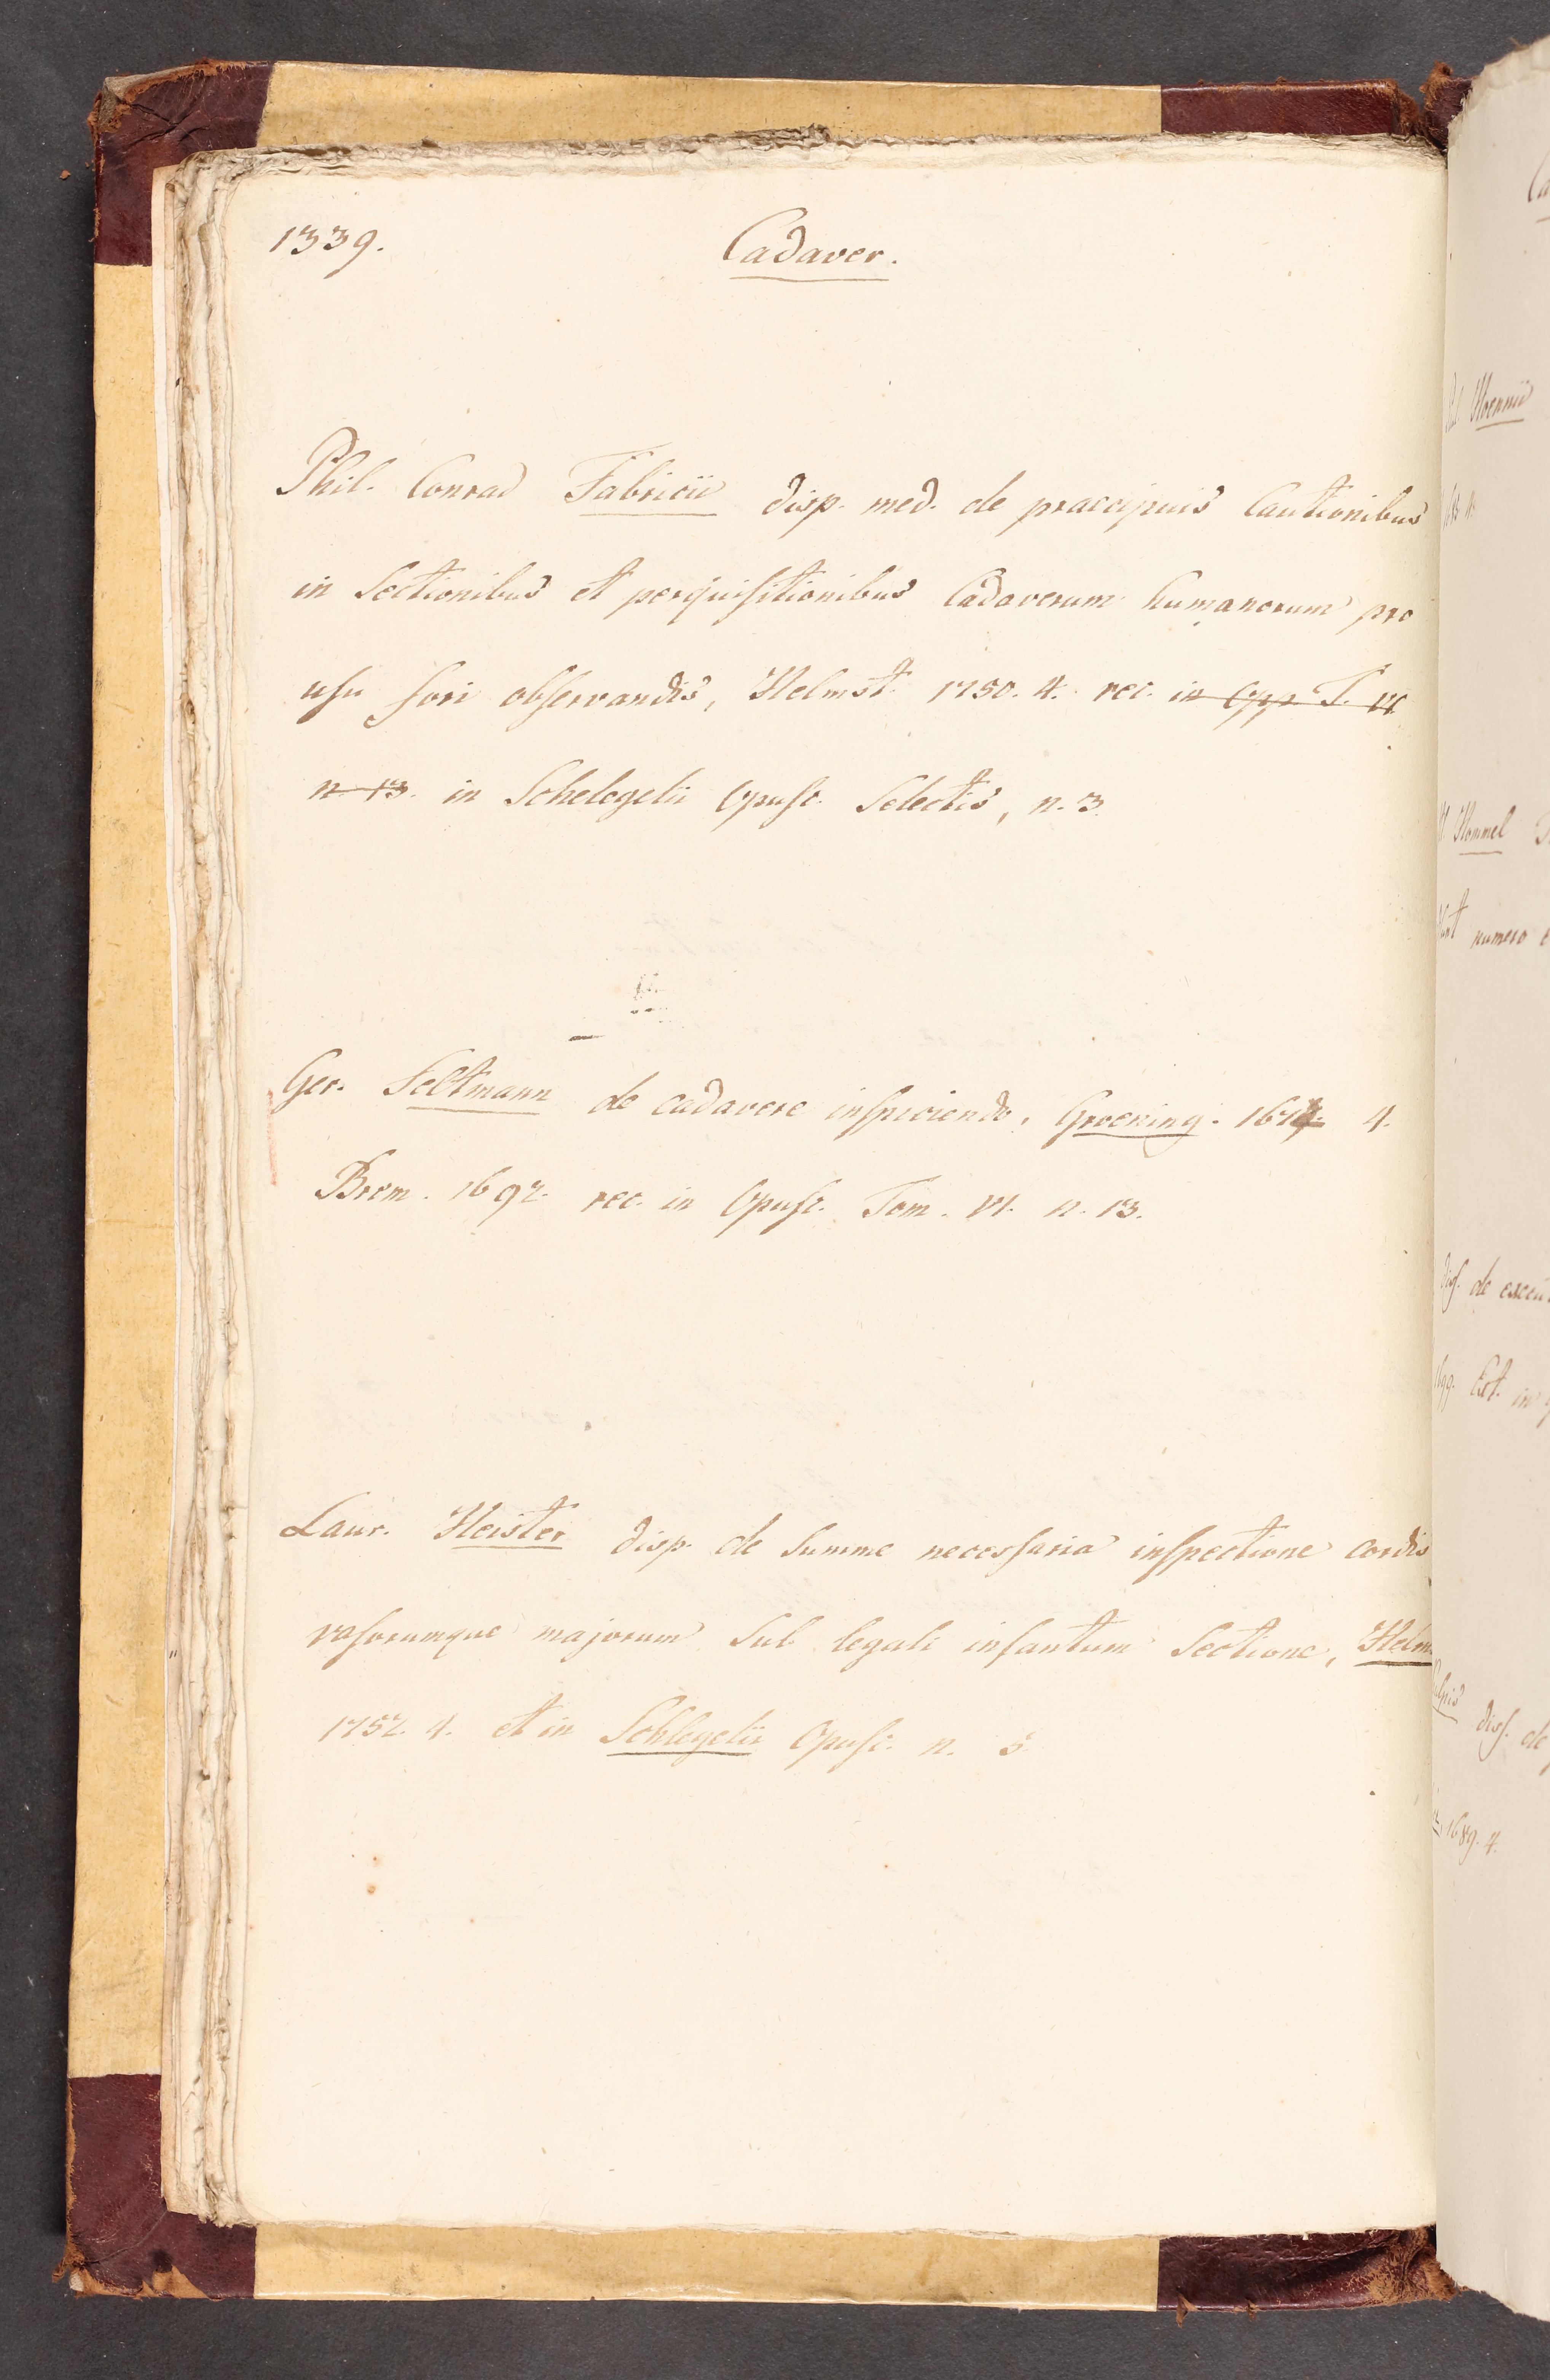 1339.
Cadaver.
Phil. Conrad Fabricii disp. med. de praecipuis Cautionibus
in Sectionibus et perquisitionibus Cadaverum humanorum pro
usu fori observandis, Helmst. 1750. 4. rec. in Opp. T. VI
n. 13. in Schelegelii Opusc. Selectis, n. 3.
Ger. Feltmann de cadavere inspiciendo, Groening. 4.
Brem. 1692. rec. in Opusc. Tom. VI. n. 13.
Laur. Heister disp. de Summe necessaria inspectione cordis
vasorumque majorum Sub legali infantum Sectione, Helm
1752. 4. et in Schlegelii Opusc. n. 5
Hoennii
Hommel
numero
diss. de
1699. Ext. in
diss. de
1689. 4.